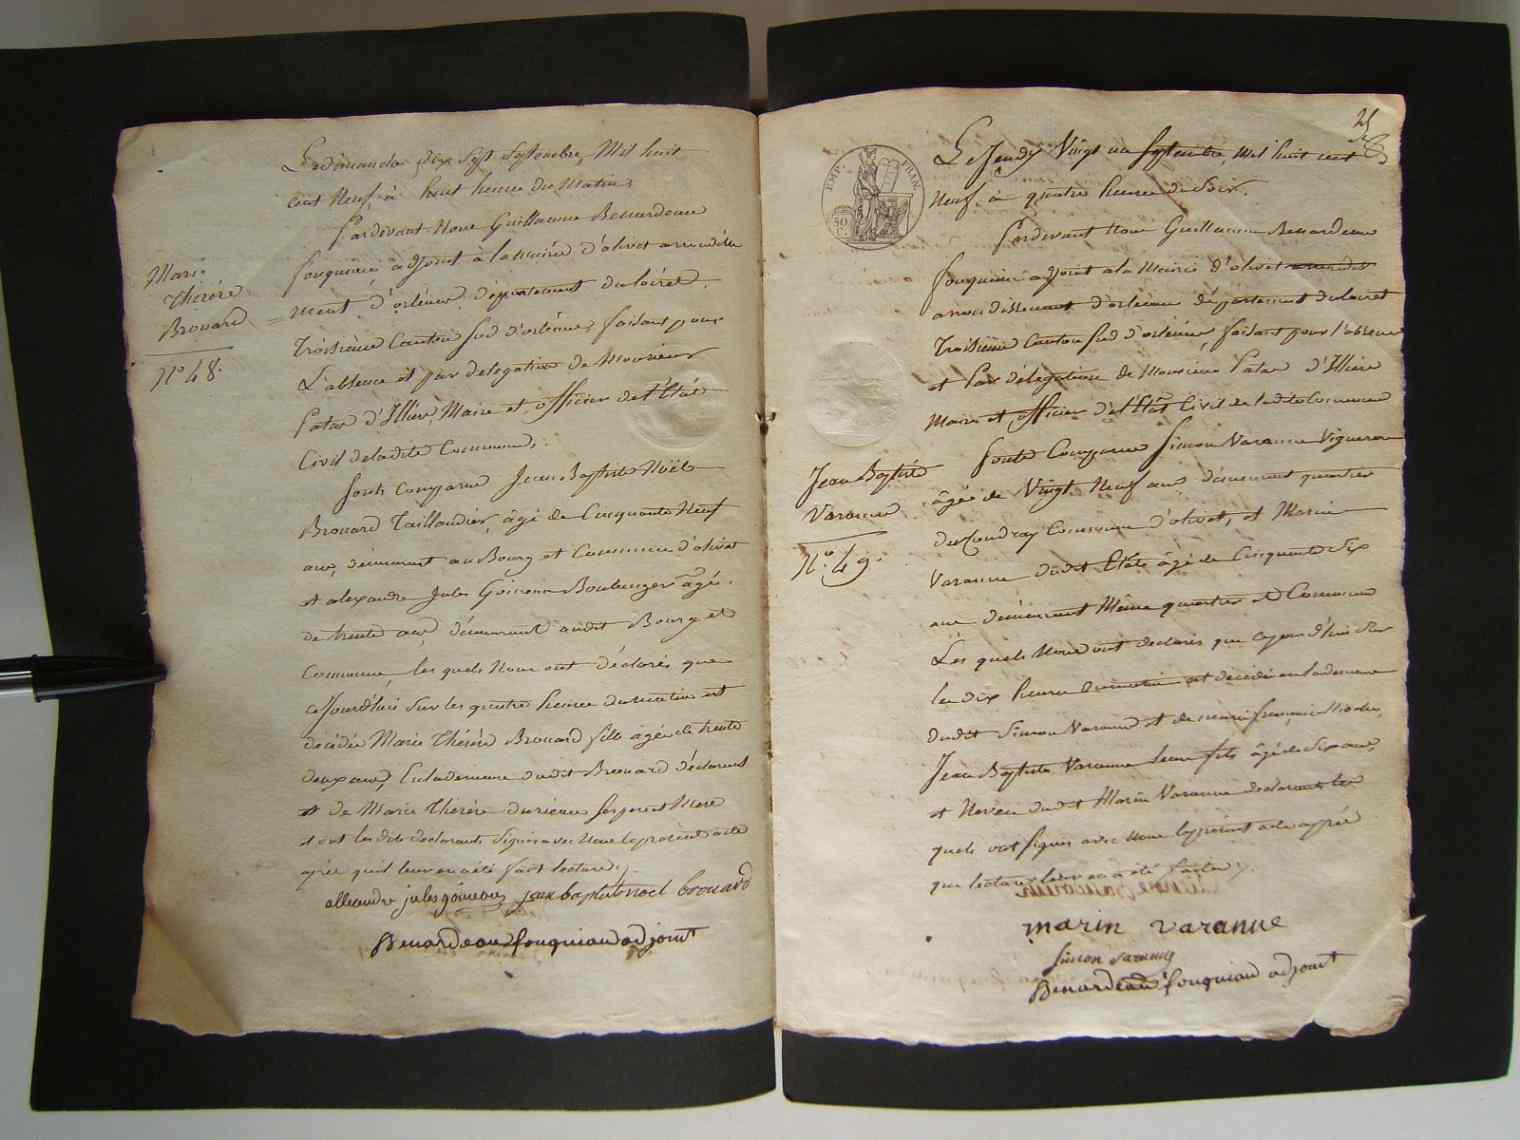 Le dimanche dix Sept Septembre, Mil huit
Cent Neuf, à huit heure du Matin,
Pardevant Nous Guillaume Benardeau
fouquiau adjoint à la mairie d'olivet arrondisse
ment d'orléans département du loiret,
Troisième Canton Sud d'orléans, faisant pour
L'absence et par délégation de Monsieur
Patas d'Illiers, Maire et officier de l'Etat
Civil de ladite Commune,
Marie
Thérèse
Brouard
N° 48.
Sont Comparus Jean Baptiste Noël
Brouard Taillandier, âgé de Cinquante Neuf
ans, demeurant au Bourg et Commune d'olivet
et alexandre Jules Boulanger âgé
de trente ans, demeurant audit Bourg et
Commune, les quels Nous ont déclarés que
cejourd'hui Sur les quatre heures du matin est
décédée Marie Thérèse Brouard fille âgée de trente
deux ans, En la demeure dudit Brouard déclarant
et de Marie Thérèse Ses pere et Mere
et ont les dits déclarants Signés avec Nous le present acte
après qu'il leur en a été fait lecture,
allexandre jules jean baptiste noel brouard
Benardeau fouquiau adjoint
25
EMP. FRAN.
50
C.
Le Jeudy Vingt un Septembre, Mil huit cent
Neuf, à quatre heures du Soir.
Pardevant Nous Guillaume Benardeau
fouquiau adjoint a la Mairie d'olivet
arrondissement d'orleans département du Loiret
Troisième Canton Sud d'orléans, faisant pour l'absence
et Par délégation de Monsieur Patas d'Illiers
Maire et officier de l'Etat Civil de ladite Commune
Jean Baptiste
Varanne
N° 49.
Sont Comparus Simon Varanne Vigneron
âgé de Vingt Neuf ans demeurant quartier
du Coudray Commune d'olivet, et Marin
Varanne dudit Etat âgé de Cinquante Six
ans demeurant Même quartier et Commune
Les quels Nous ont declarés que cejourd'hui Sur
les dix heures du matin est décédé en la demeure
dudit Simon Varanne et de marie françoise
Jean Baptiste Varanne leur fils âgé de Six ans,
et Neveu dudit Marin Varanne déclarant les
quels ont signés avec Nous le present acte après
que lecture leur en a été faite,
marin varanne
Simon varanne
Benardeau fouquiau adjoint